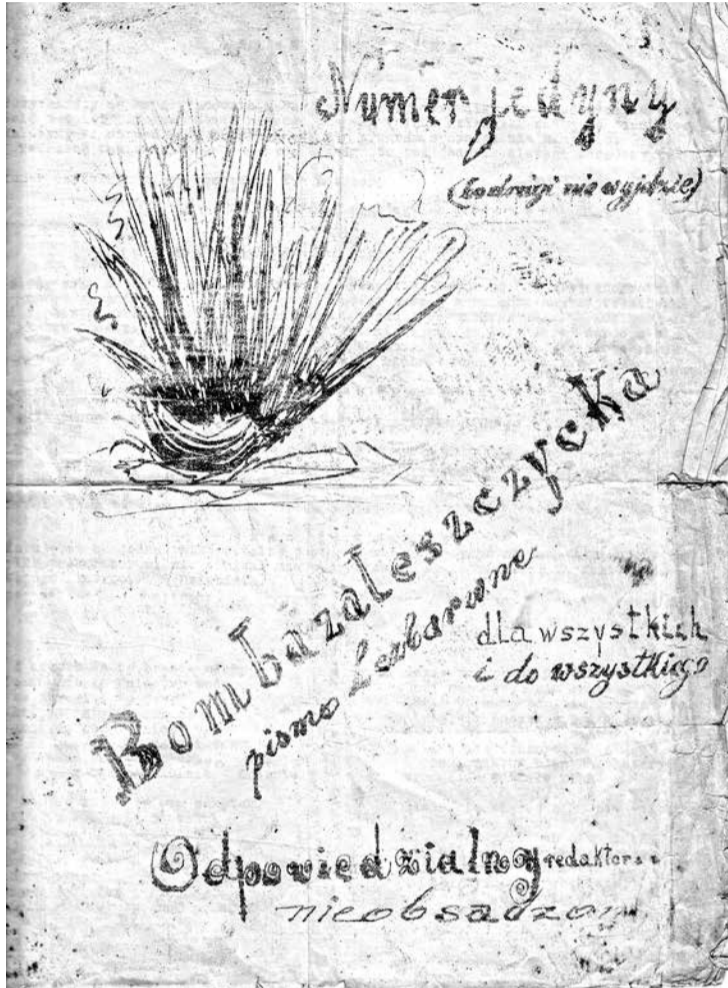 Numer jedyny
(bo drugi nie wyjdzie)
Bomba zaleszczycka
pismo bezbarwne
dla wszystkich
i do wszystkiego
Odpowiedzialny redaktor
nieobsadzony